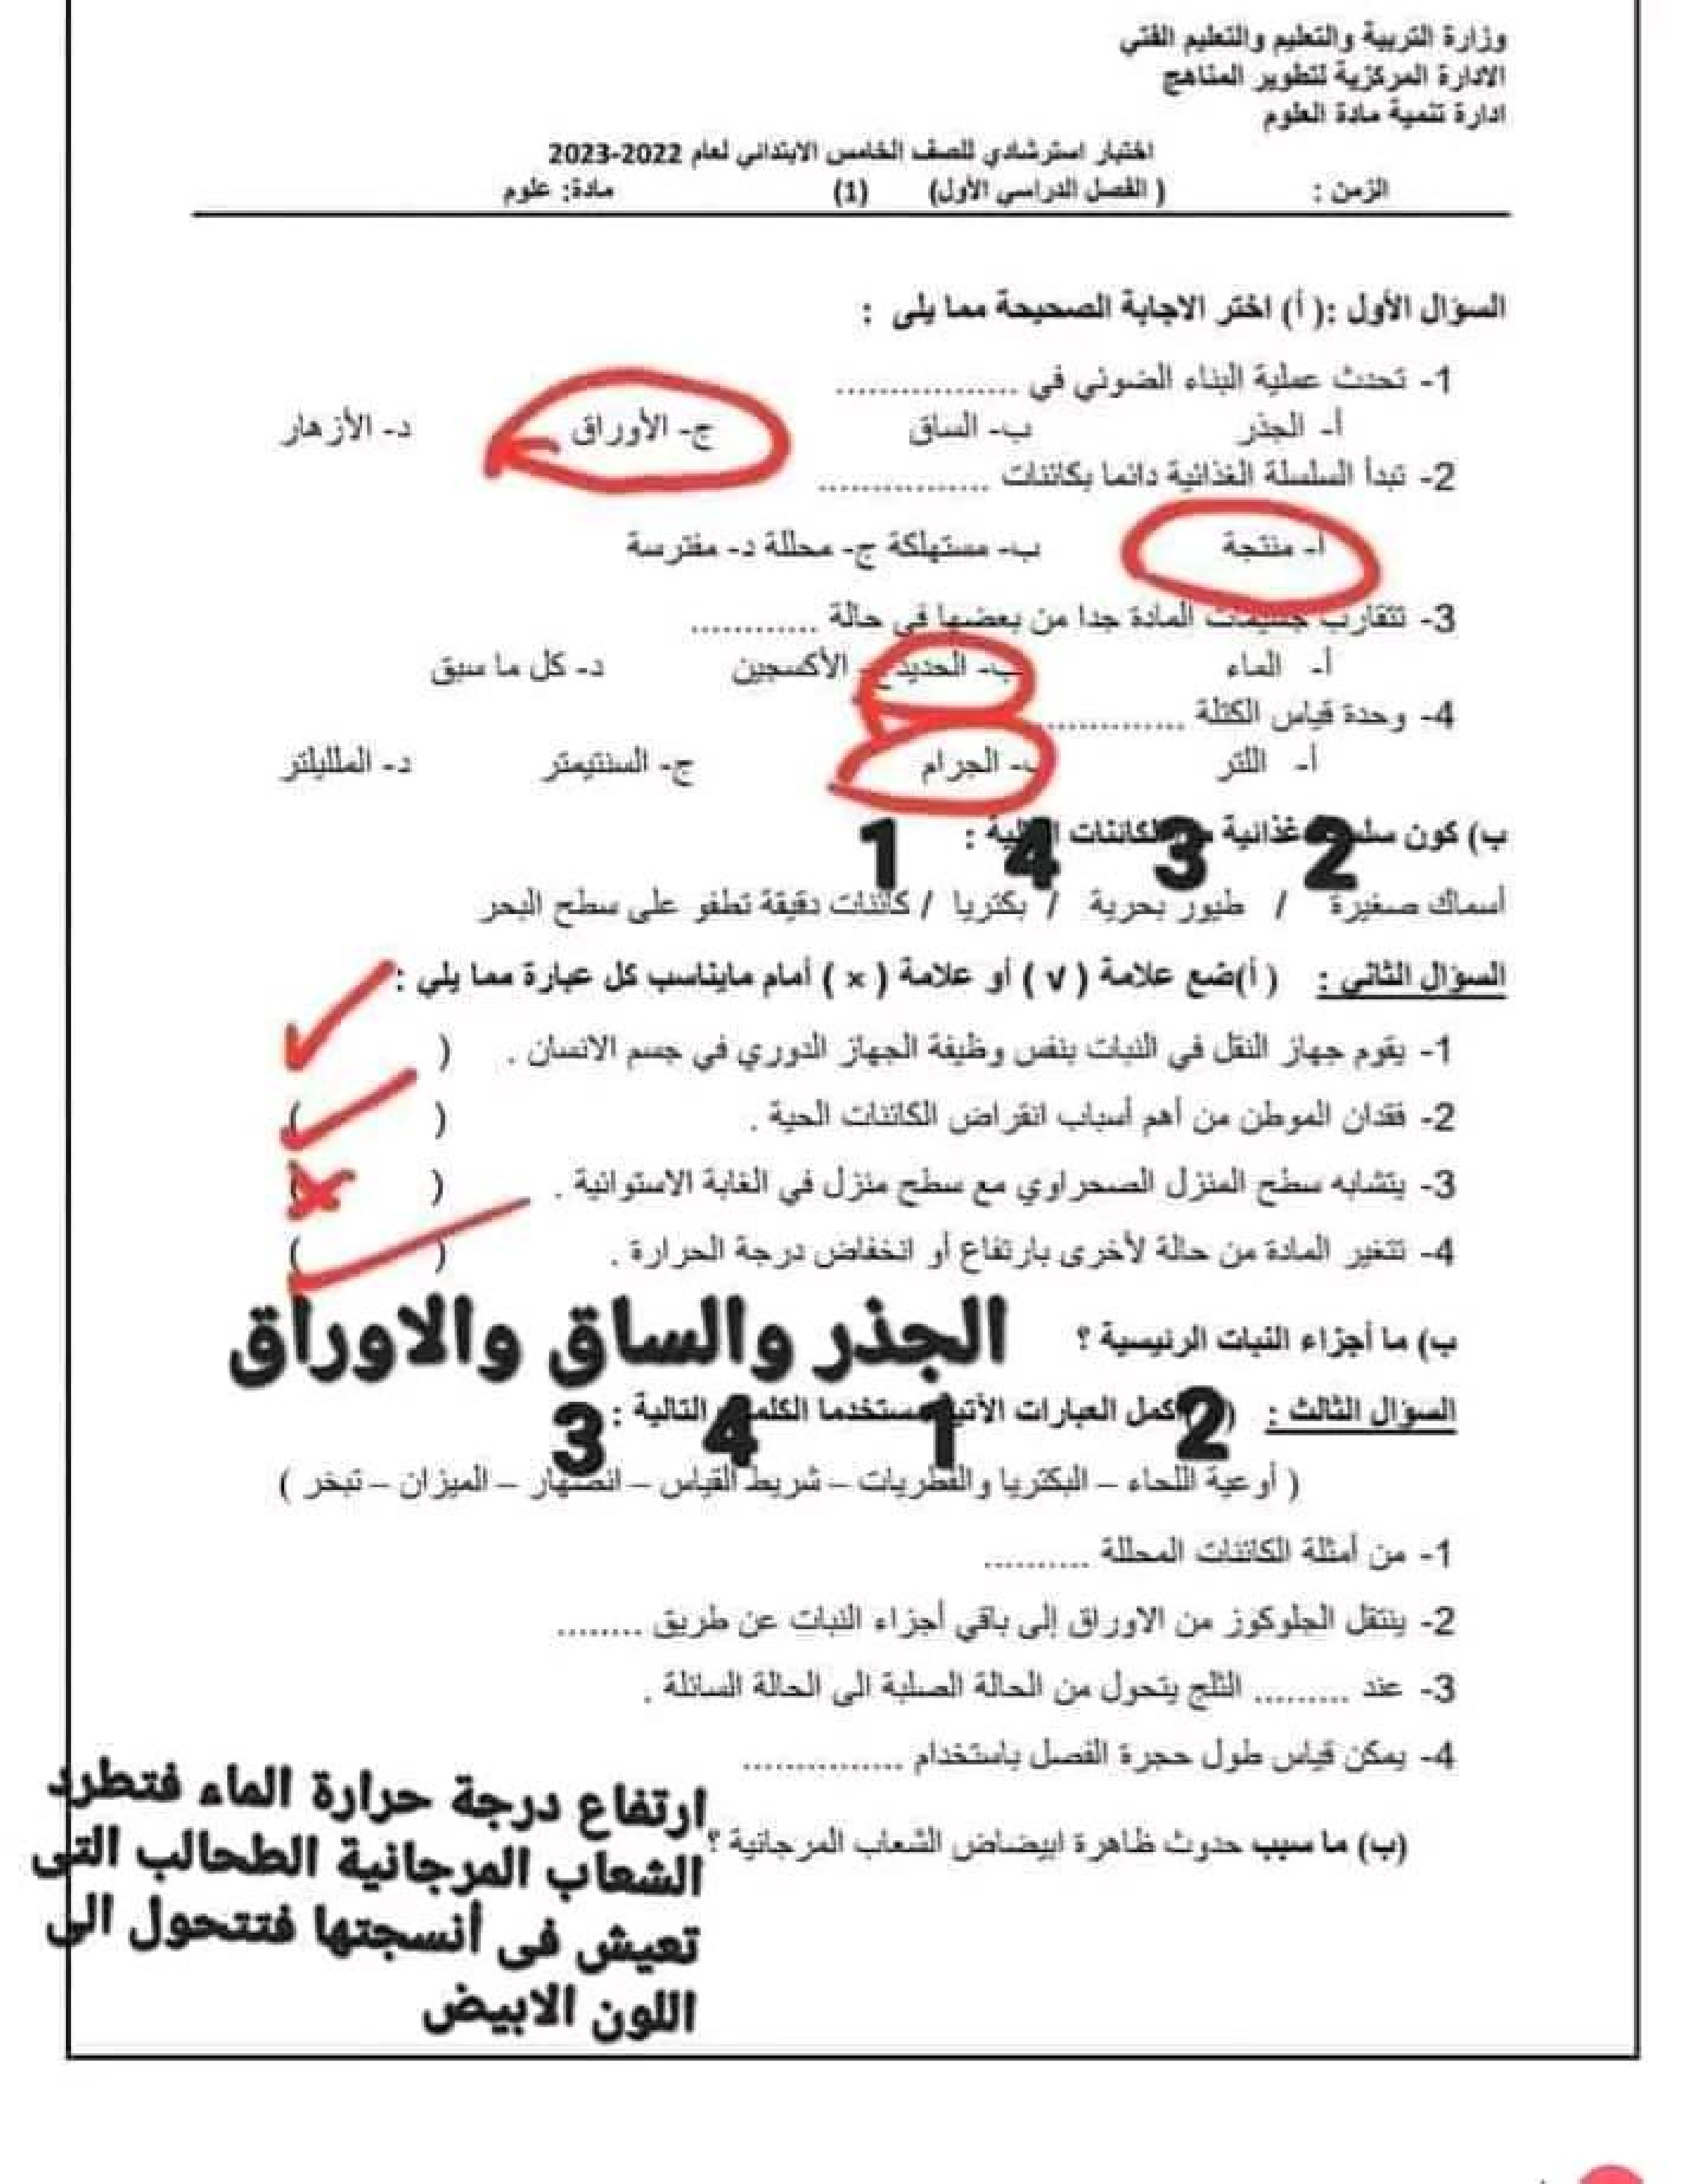 وزارة التربية والتعليم والتعليم الفني
الادارة المركزية لتطوير المناهج
ادارة تنمية مادة العلوم
اختبار استرشادي للصف الخامس الابتدائي لعام 2022-2023
الزمن : ( الفصل الدراسي الأول) (1) مادة: علوم
السؤال الأول :( أ) اختر الاجابة الصحيحة مما يلى :
1- تحدث عملية البناء الضوئي في ..................
أ- الجذر ب- الساق ج- الأوراق د- الأزهار
2- تبدأ السلسلة الغذائية دائما بكائنات .................
أ- منتجة ب- مستهلكة ج- محللة د- مفترسة
3- تتقارب جسيمات المادة جدا من بعضها في حالة ............
أ- الماء ب- الحديد ج- الأكسجين د- كل ما سبق
4- وحدة قياس الكتلة ..............
أ- اللتر ب- الجرام ج- السنتيمتر د- المللیلتر
ب) كون سلسلة غذائية الكائنات التالية :
2 3 4 1
أسماك صغيرة / طيور بحرية / بكتريا / كائنات دقيقة تطفو على سطح البحر
السؤال الثاني : ( أ)ضع علامة ( √ ) أو علامة ( × ) أمام مايناسب كل عبارة مما يلي :
1- يقوم جهاز النقل في النبات بنفس وظيفة الجهاز الدوري في جسم الانسان . ( ✓
2- فقدان الموطن من أهم أسباب انقراض الكائنات الحية . ( ✓ )
3- يتشابه سطح المنزل الصحراوي مع سطح منزل في الغابة الاستوائية . ( × )
4- تتغير المادة من حالة لأخرى بارتفاع أو انخفاض درجة الحرارة . ( ✓ )
ب) ما أجزاء النبات الرئيسية ؟ الجذر والساق والاوراق
السؤال الثالث : ( أكمل العبارات الآتية مستخدما الكلمات التالية :
2 1 4 3
( أوعية اللحاء – البكتريا والفطريات – شريط القياس – انصهار – الميزان – تبخر )
1- من أمثلة الكائنات المحللة ..........
2- ينتقل الجلوكوز من الاوراق إلى باقي أجزاء النبات عن طريق ........
3- عند ......... الثلج يتحول من الحالة الصلبة الى الحالة السائلة .
4- يمكن قياس طول حجرة الفصل باستخدام ...............
(ب) ما سبب حدوث ظاهرة ابيضاض الشعاب المرجانية ؟
ارتفاع درجة حرارة الماء فتطرد
الشعاب المرجانية الطحالب التى
تعيش فى أنسجتها فتتحول الى
اللون الابيض